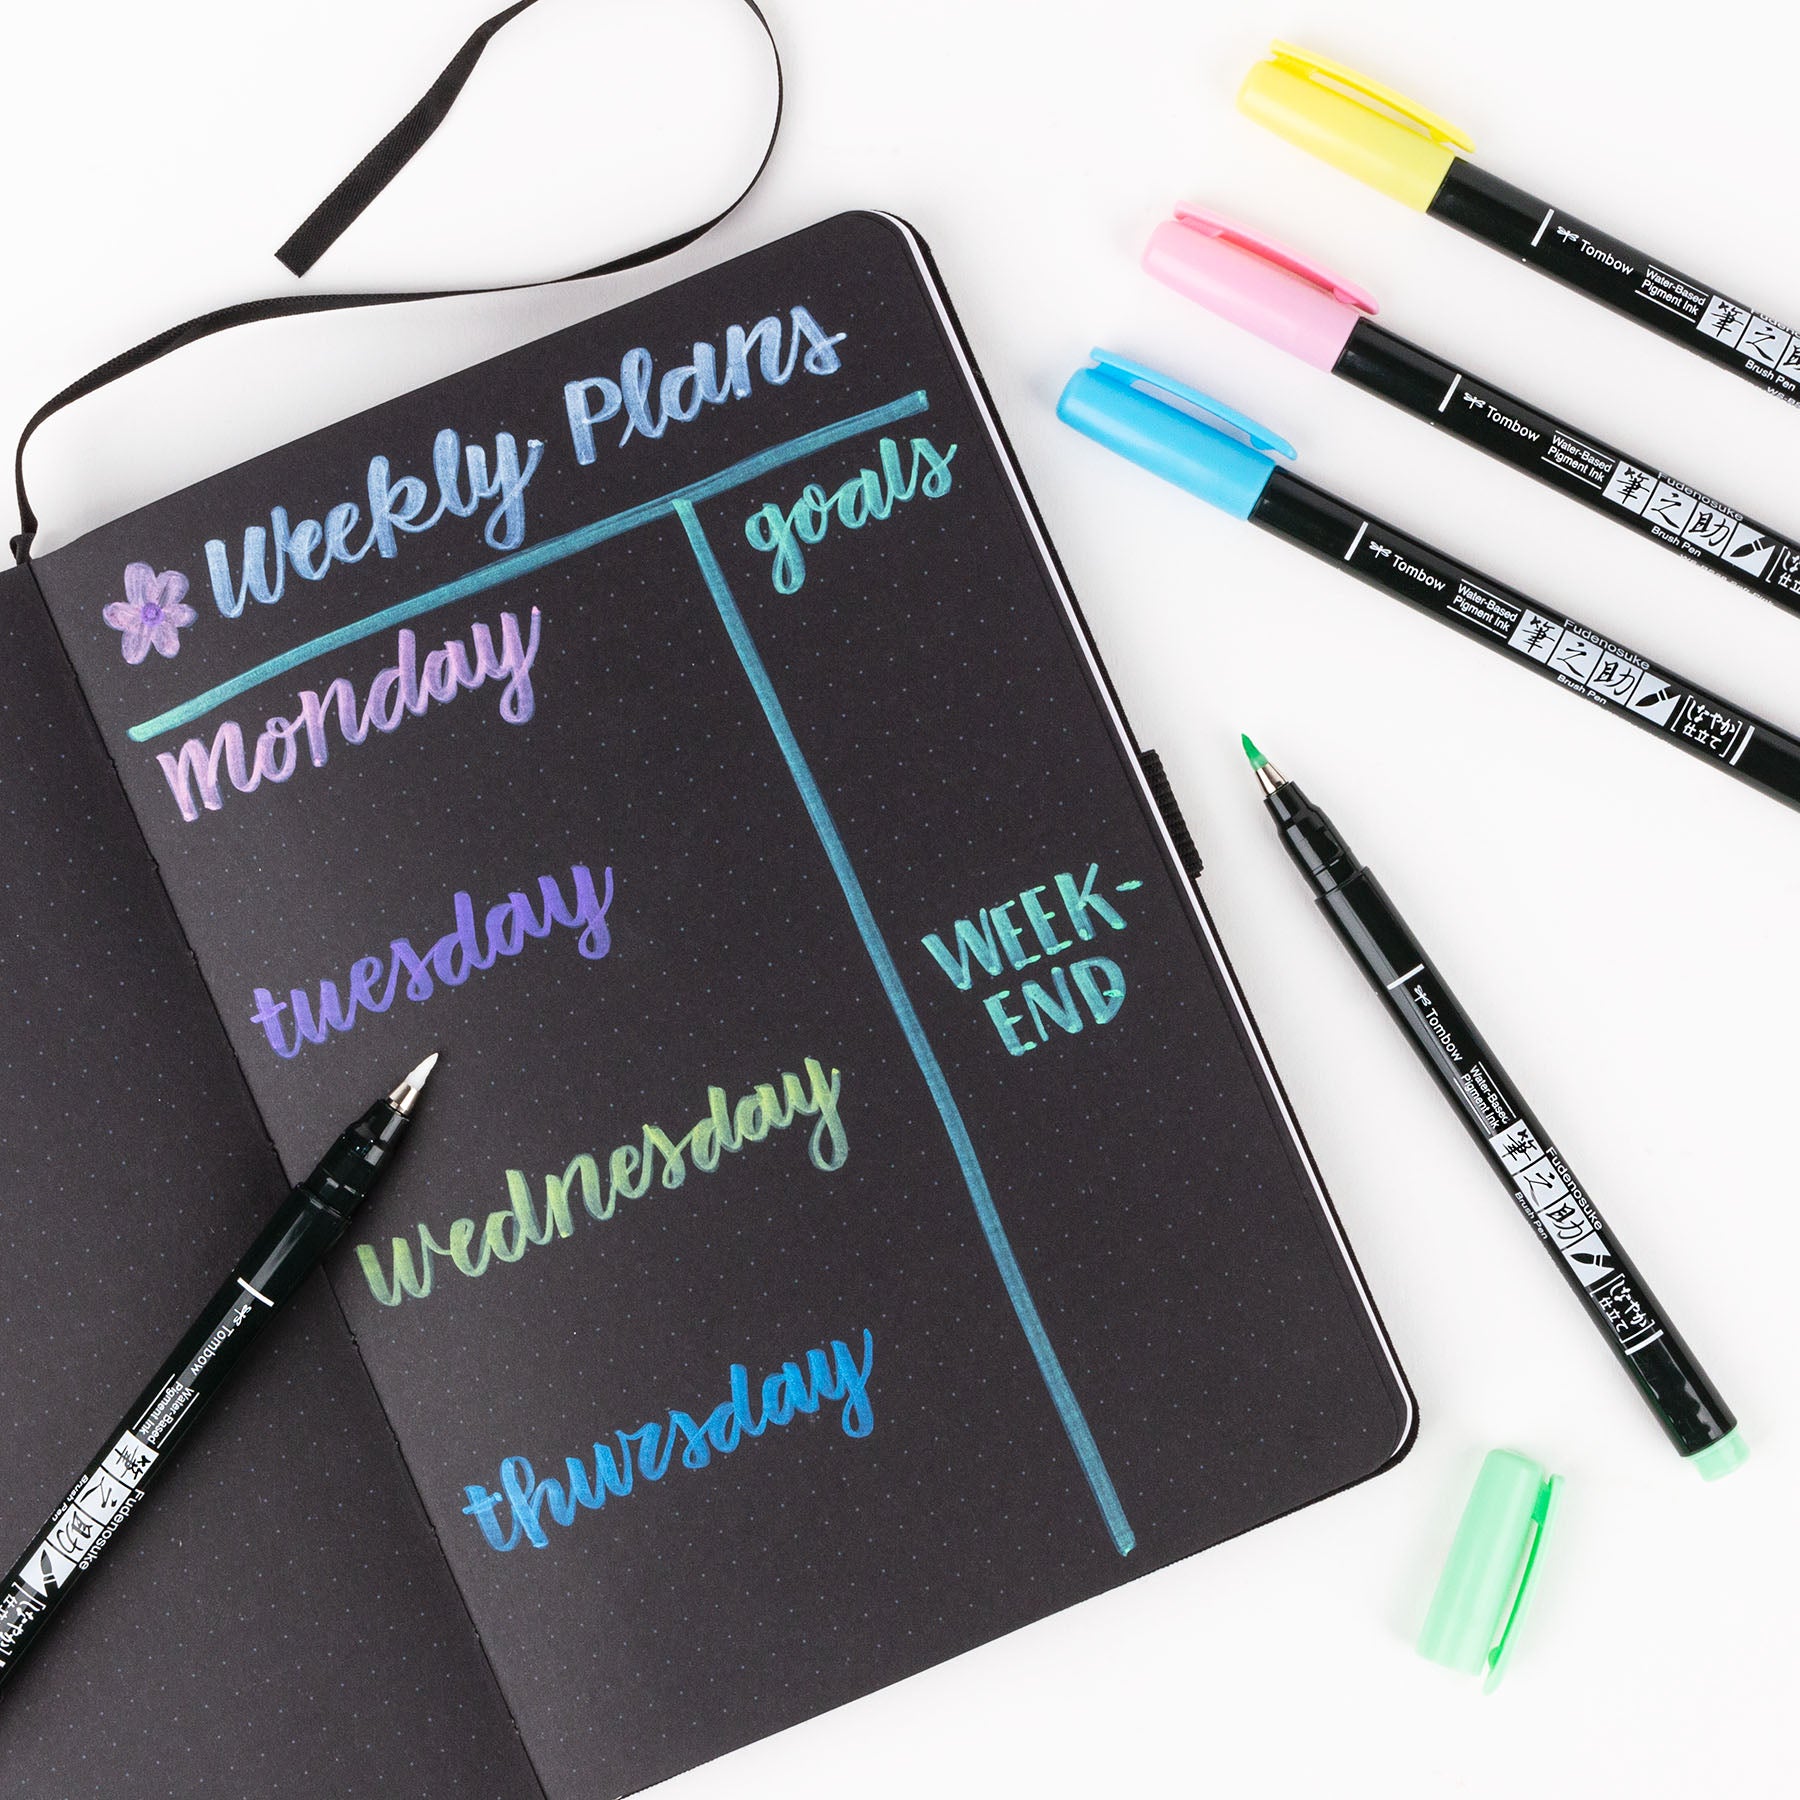 Weekly Plans
monday
goals
tuesday
WEEK-
END
wednesday
thursday
Tombow
Water-Based
Pigment Ink
筆之
Brush Pen
Tombow
Water-Based
Pigment Ink
筆之助
Fudenosuke
Brush Pen
Tombow
Water-Based
Pigment Ink
筆之助
Fudenosuke
Brush Pen
しなやか
仕立て
Tombow
Water-Based
Pigment Ink
筆之助
Fudenosuke
Brush Pen
しなやか
仕立て
Tombow
Water-Based
Pigment Ink
筆之助
Fudenosuke
Brush Pen
しなやか
仕立て